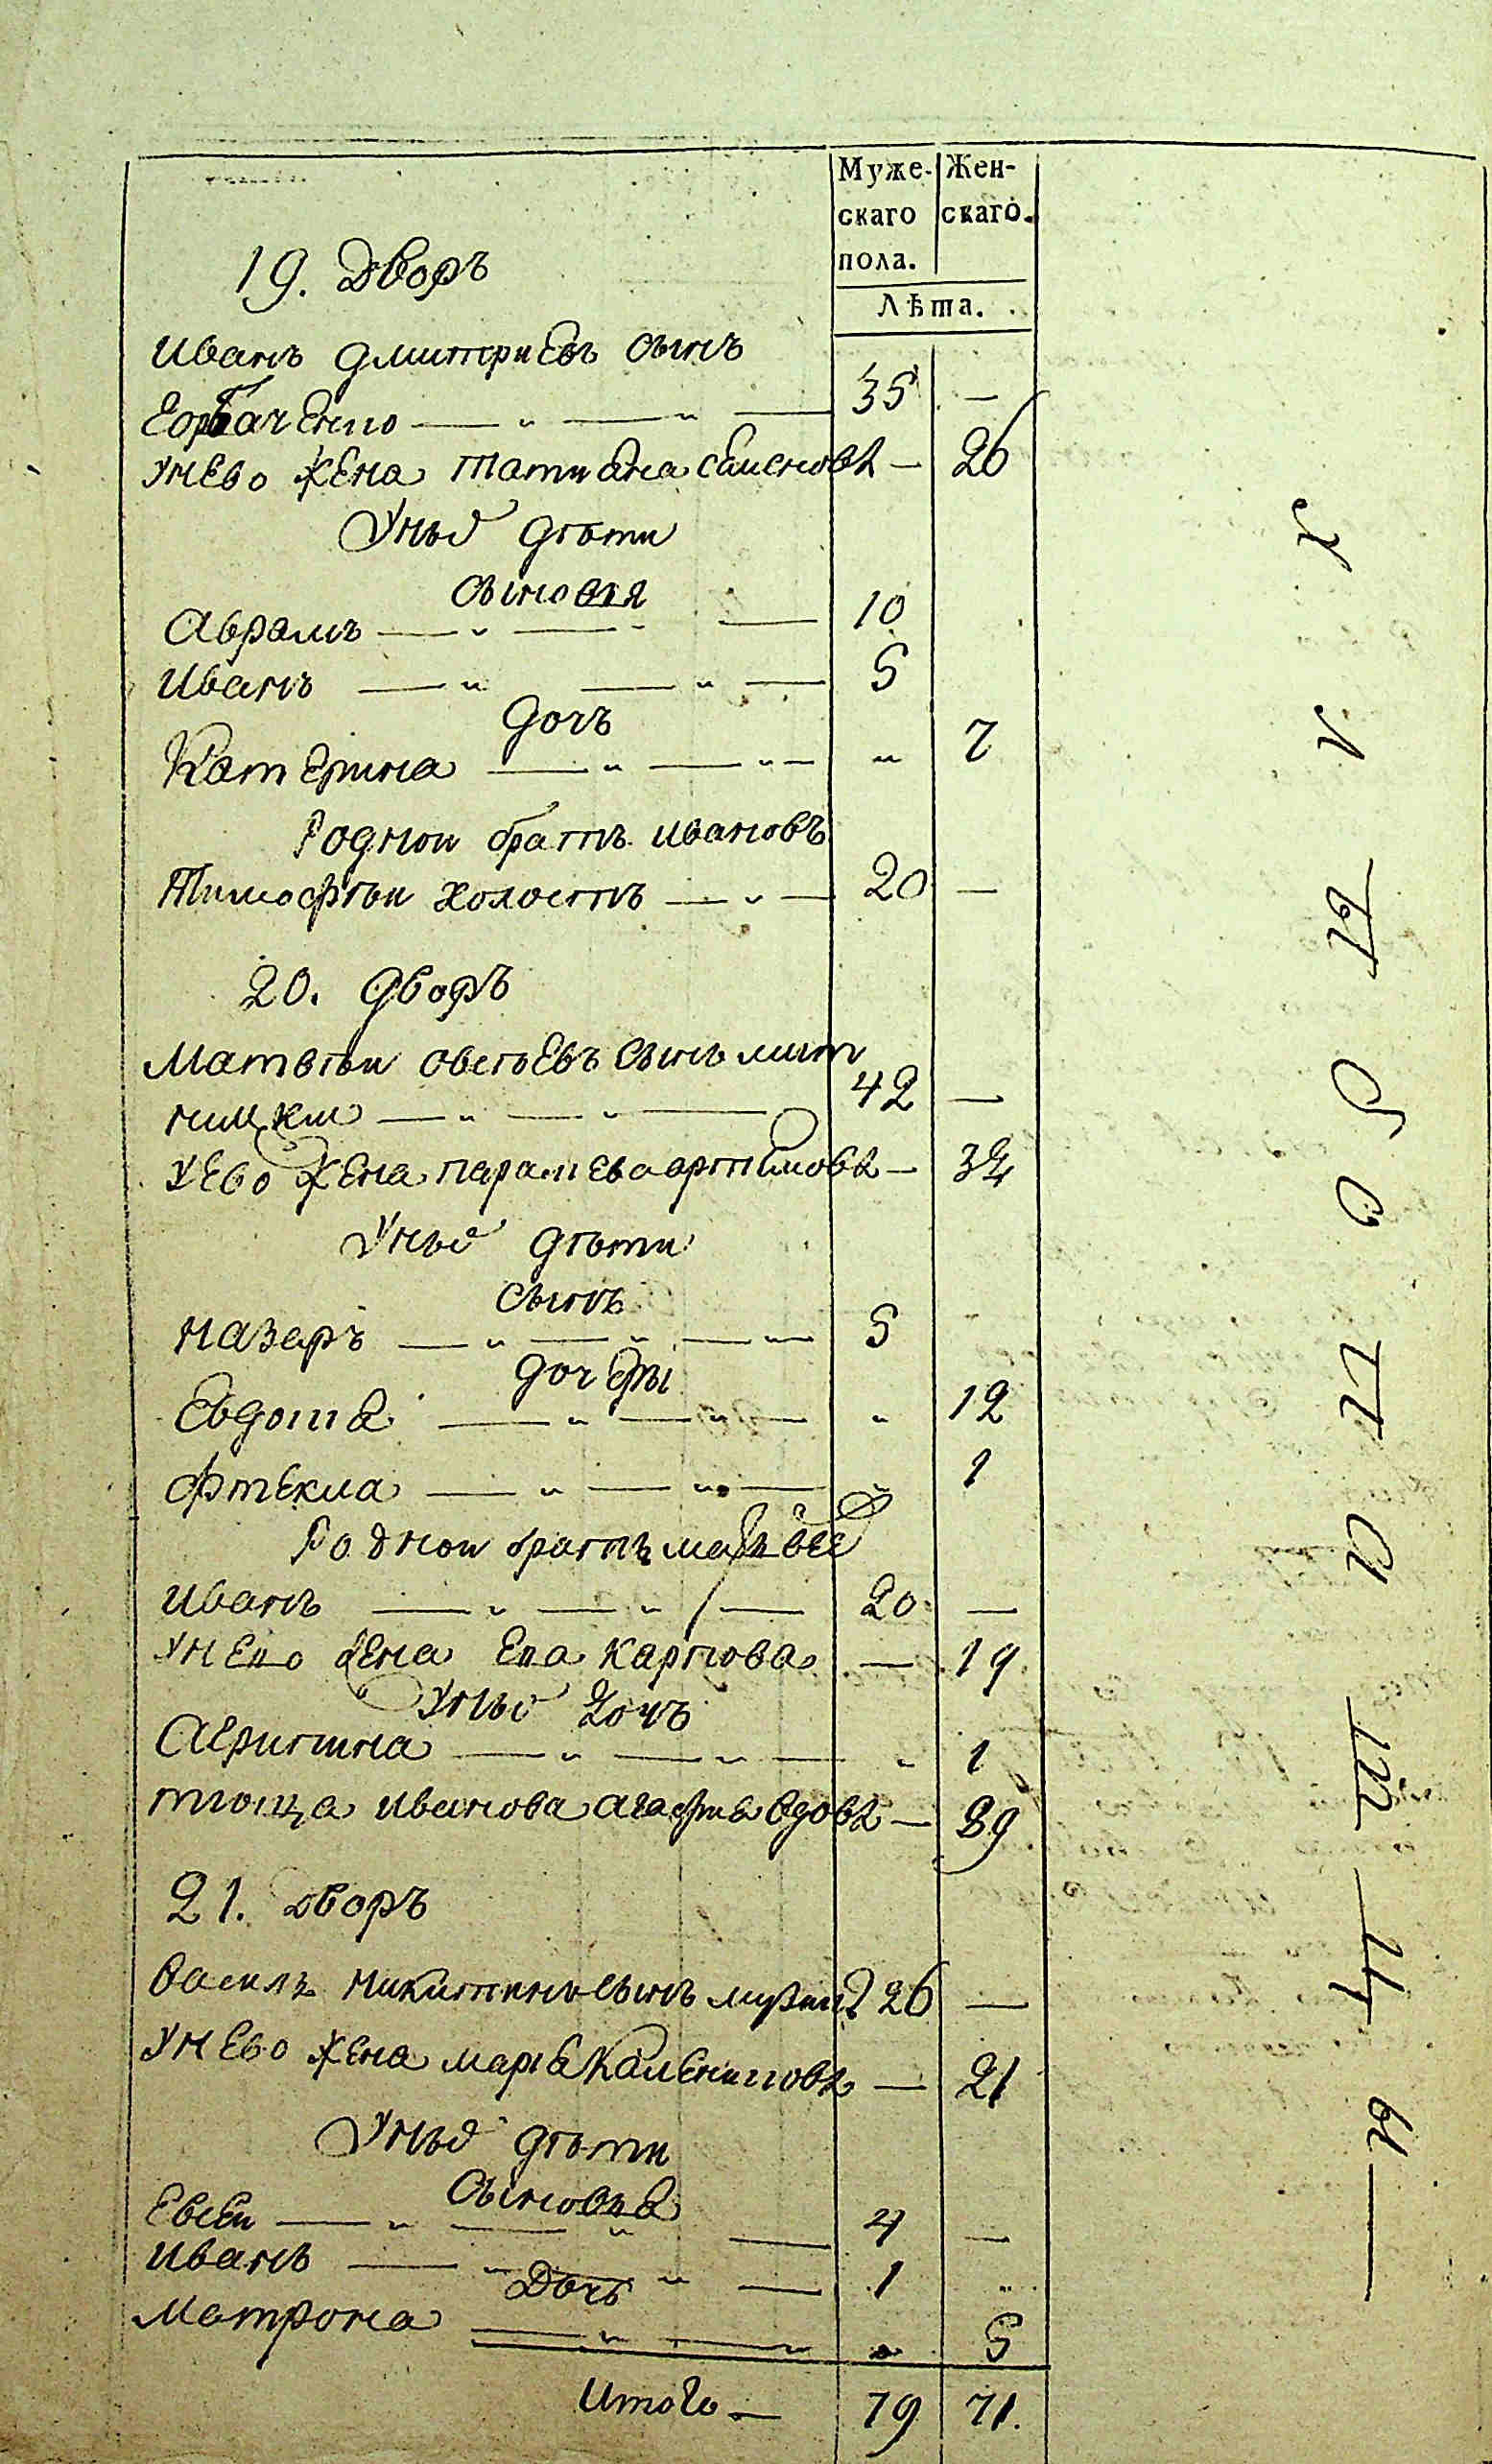 Муже- Жен-
скаго скаго.
пола.
Лѣта.
19. Дворъ
Иванъ дмитриевъ сынъ
Горбаченко — „ — „ — 35 —
унево жена татиана семенова — 26
Унихъ дѣти
сыновья
Аврамъ — „ — „ — 10
Иванъ — „ — „ — 5
дочъ
Катерина — „ — „ — „ 7
Роднои братъ ивановъ
Тимофѣи холостъ — „ — 20 —
20. дворъ
Матвѣи евсѣевъ сынъ
42 —
уево жена параскева артимова — 34
Унихъ дѣти
сынъ
назаръ — „ — „ — „ — 5
дочери
Евдокиа — „ — „ — „ 12
фтекла — „ — „ — „ 1
Роднои братъ матвѣев
Иванъ — „ — „ — 20 —
унево жена Ева карпова — 19
унихъ дочъ
Агрипина — „ — „ — „ 1
тюща иванова агафиа вдова — 89
21. дворъ
Василь никитинъ сынъ 26 —
унево жена мариа каленикова — 21
Унихъ дѣти
Сыновья
Евсеи — „ — „ — 4 —
Иванъ — „ — „ — 1 „
Дочь
Матрона — „ — „ „ 5
Итого — 79 71.